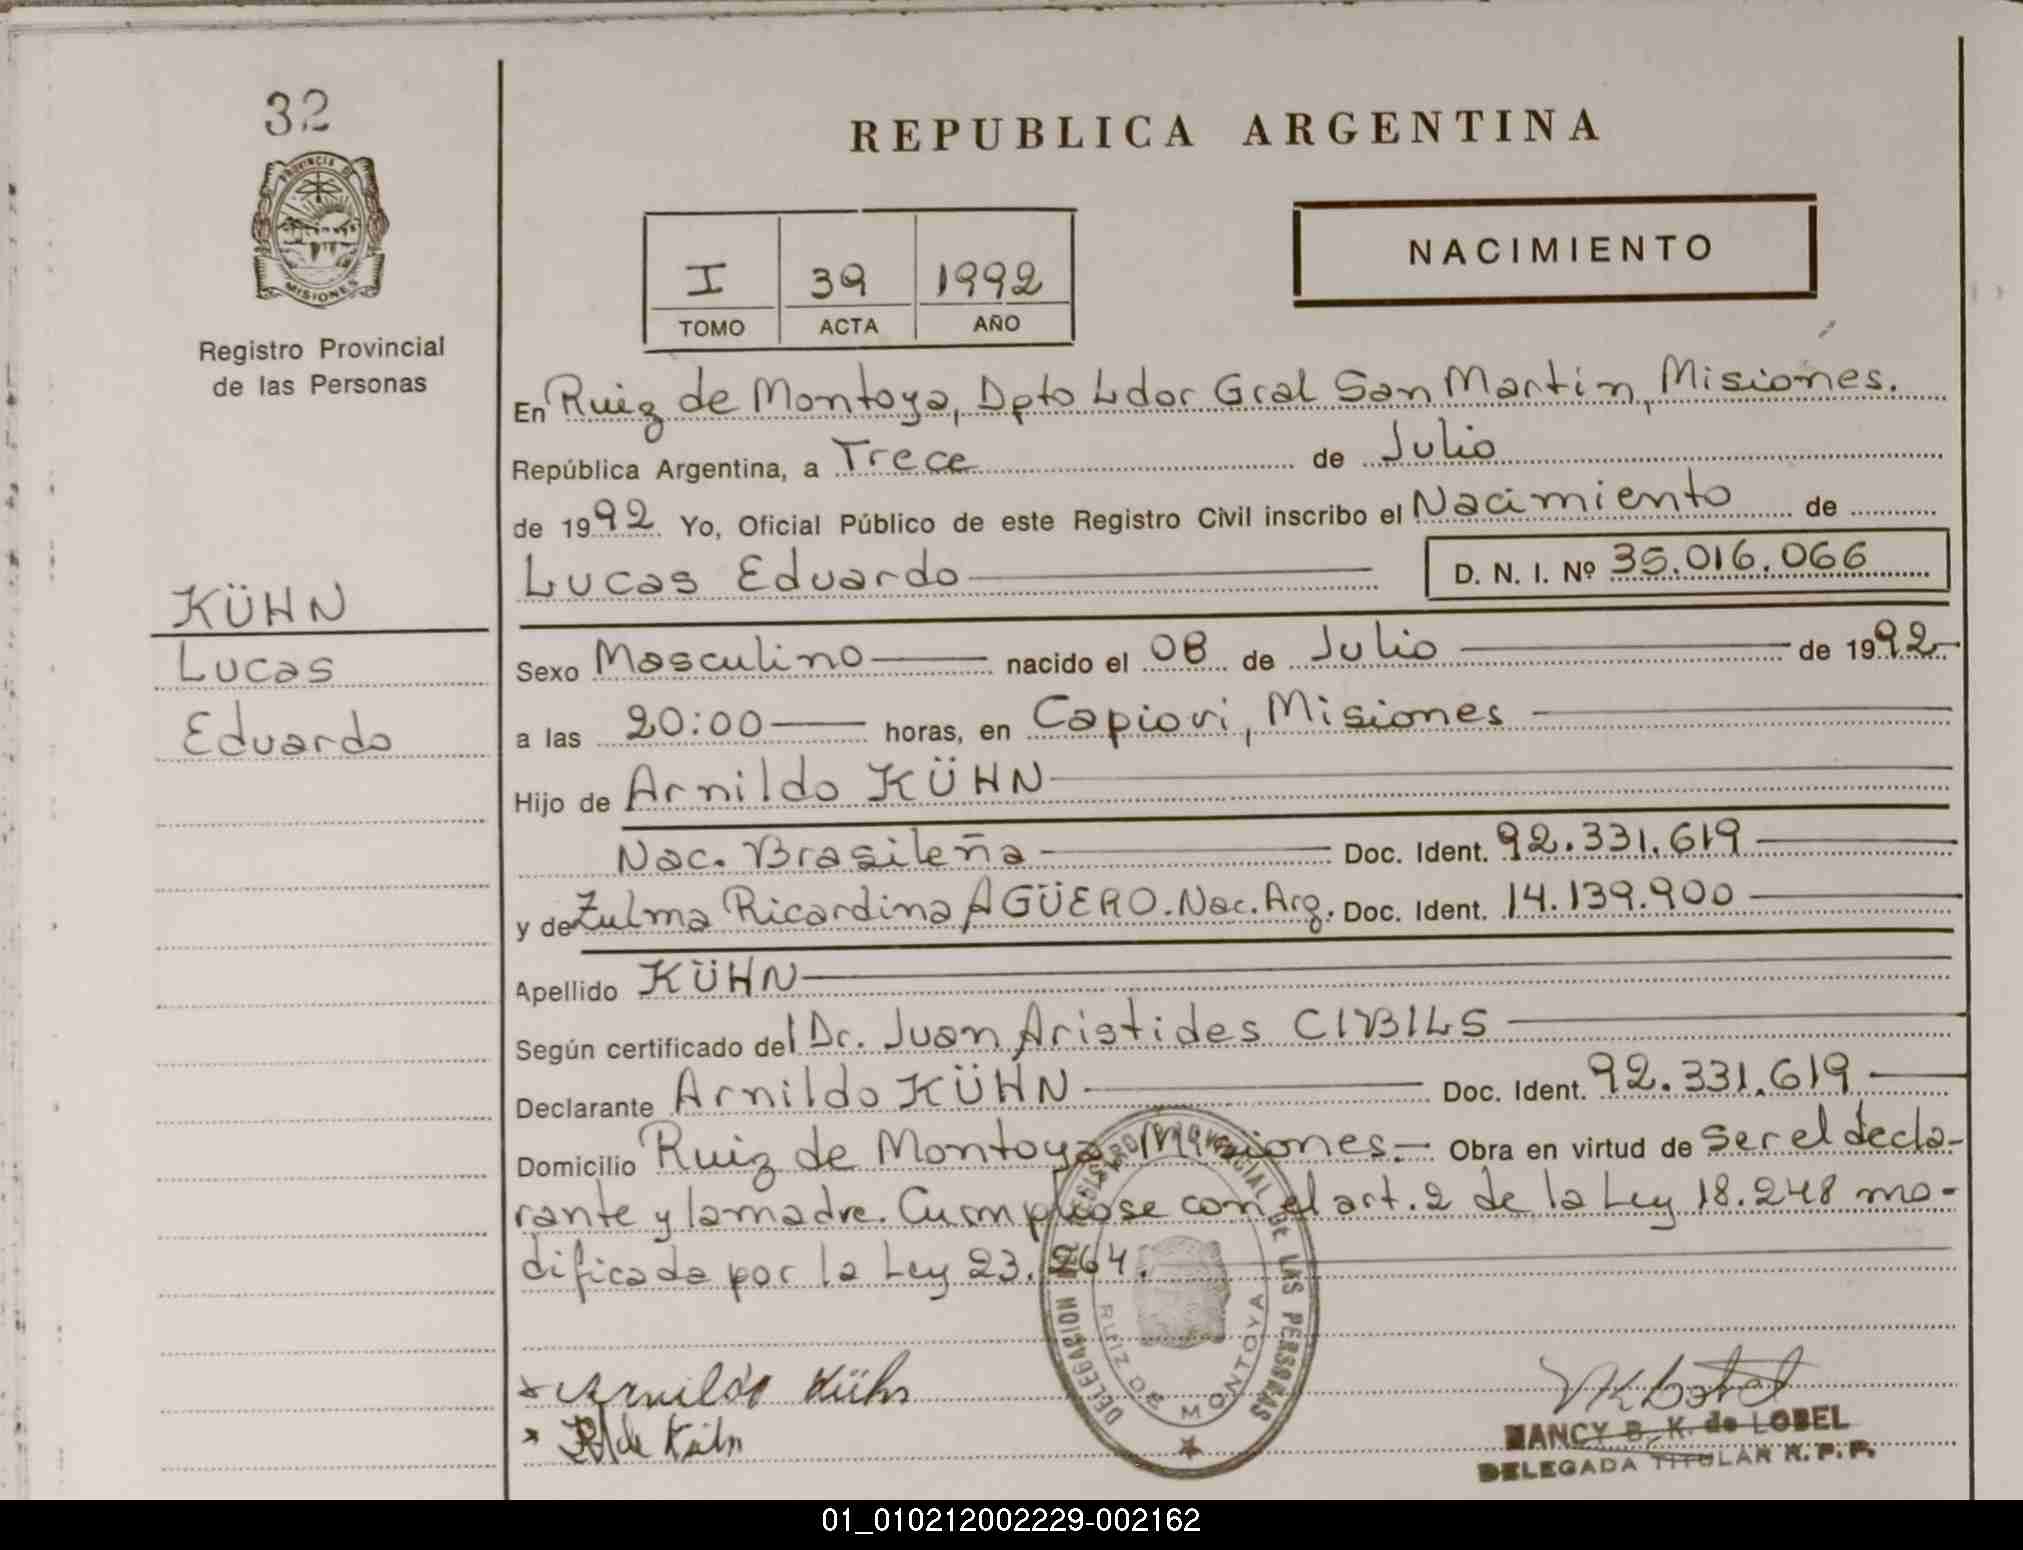 32
PROVINCIA DE
MISIONES
Registro Provincial
de las Personas
KÜHN
Lucas
Eduardo
REPUBLICA ARGENTINA
I 39 1992
TOMO ACTA AÑO
NACIMIENTO
En Ruiz de Montoya, Dpto Ldor Gral San Martin, Misiones.
República Argentina, a Trece de Julio
de 1992 Yo, Oficial Público de este Registro Civil inscribo el Nacimiento de
Lucas Eduardo D. N. I. Nº 35.016.066
Sexo Masculino nacido el 08 de Julio de 1992
a las 20:00 horas, en Capiovi, Misiones
Hijo de Arnildo KÜHN
Nac. Brasileña Doc. Ident. 92.331.619
y de Zulma Ricardina AGÜERO. Nac. Arg. Doc. Ident. 14.139.900
Apellido KÜHN
Según certificado del Dr. Juan Aristides CIBILS
Declarante Arnildo KÜHN Doc. Ident. 92.331.619
Domicilio Ruiz de Montoya Misiones.- Obra en virtud de ser el decla-
rante y la madre. Cumpliose con el art. 2 de la Ley 18.248 mo-
dificada por la Ley 23.264.
DELEGACION REGISTRO PROVINCIAL DE LAS PERSONAS
RUIZ DE MONTOYA
x Arnildo Kühn
x de Kühn
NANCY B. K. de LOBEL
DELEGADA TITULAR R. P. P.
01_010212002229-002162